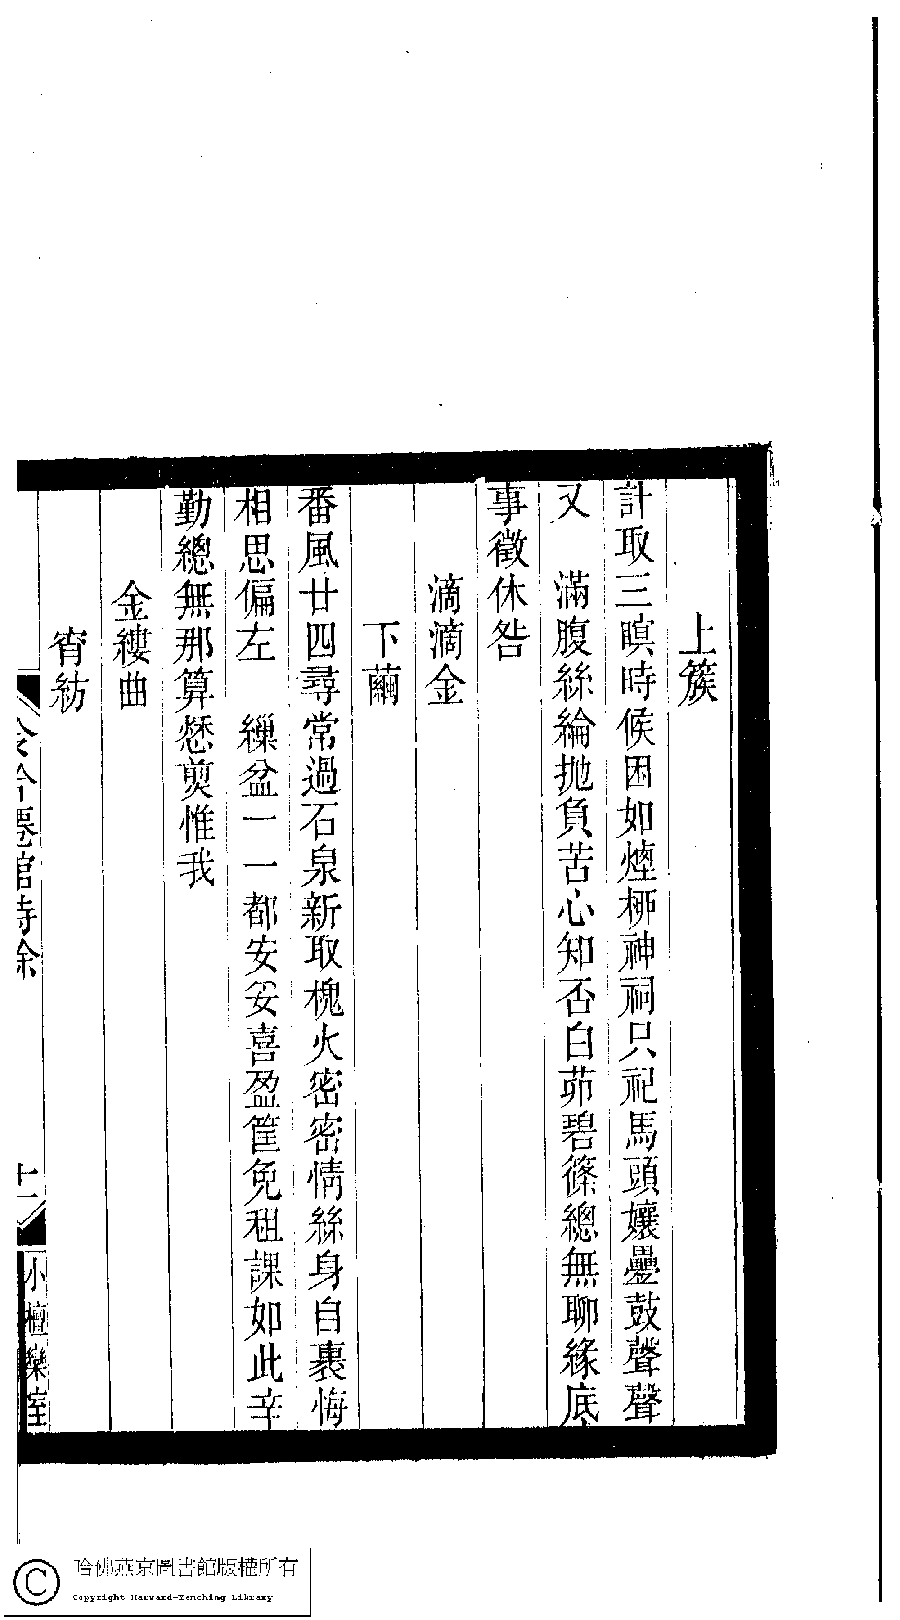 上簇
計取三瞑時候困如煙桺神祠只祀馬頭孃疊鼓聲聲
又　滿腹絲綸拋負苦心知否白茆碧篠總無聊緣底
事徵休咎
滴滴金
下繭
番風廿四尋常過石泉新取槐火密密情絲身自裹悔
相思偏左　繅盆一一都安妥喜盈筐免租課如此辛
勤總無那算愁煎惟我
金縷曲
宵紡
小檀欒室
哈佛燕京圖書館版權所有
Copyright Harvard-Yenching Library